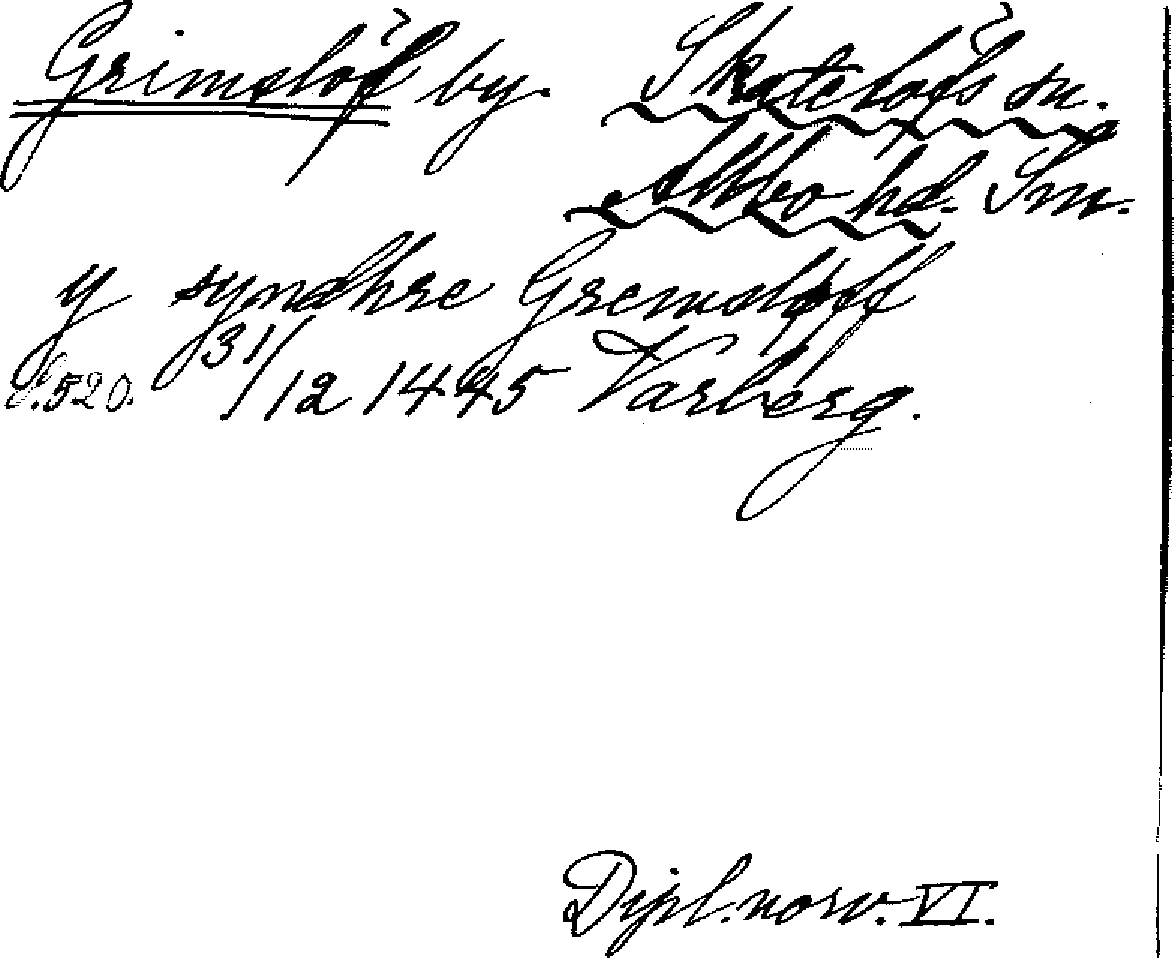 Grimslöf by. Skatelöfs sn.
Allbo hd. Sm.
y syndhre Gremslöff
S. 520. 31/12 1445 Varberg.
Dipl. norv. VI.